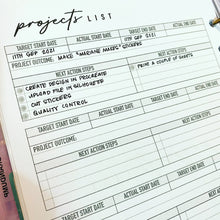 projects LIST
TARGET START DATE ACTUAL START DATE TARGET END DATE ACTUAL END DATE
11TH SEP 2021 11TH SEP 2021
PROJECT OUTCOME: MAKE "MIGRAINE MAKES" STICKERS
NEXT ACTION STEPS NEXT ACTION STEPS
CREATE DESIGN IN PROCREATE PRINT A COUPLE OF SHEETS
UPLOAD FILE IN SILHOUETTE
CUT STICKERS
QUALITY CONTROL
TARGET START DATE ACTUAL START DATE TARGET END DATE
PROJECT OUTCOME:
NEXT ACTION STEPS NEXT ACTION STEPS
TARGET START DATE ACTUAL START DATE TARGET END DATE
PROJECT OUTCOME:
NEXT ACTION STEPS